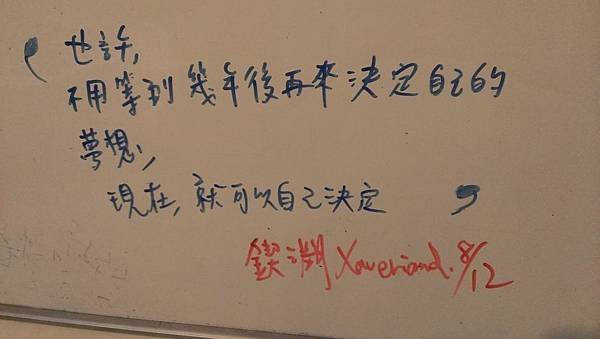 也許,
不用等到幾年後再來決定自己的
夢想,
現在,就可以自己決定
8/12